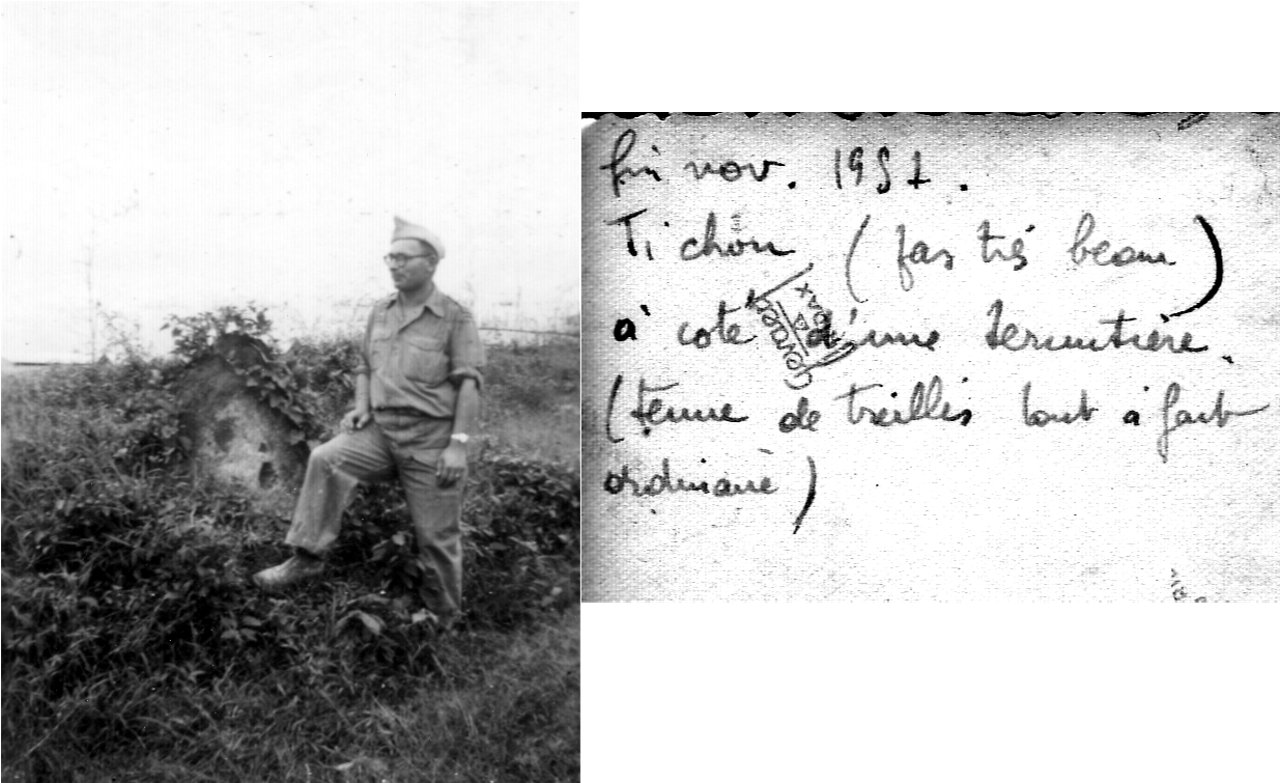 fin nov. 1951.
Ti chou (pas très beau)
à coté d'une termitière.
(tenue de treillis tout à fait
ordinaire)
Gevaert
RIDAX